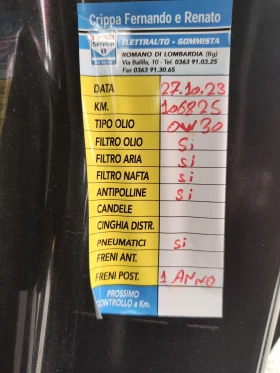 Crippa Fernando e Renato
Service
ELETTRAUTO - GOMMISTA
ROMANO DI LOMBARDIA (Bg)
Via Balilla, 10 - Tel. 0363 91.03.25
Fax 0363 91.30.65
DATA 27.10.23
KM. 105825
TIPO OLIO 0W30
FILTRO OLIO Si
FILTRO ARIA Si
FILTRO NAFTA Si
ANTIPOLLINE Si
CANDELE
CINGHIA DISTR.
PNEUMATICI Si
FRENI ANT.
FRENI POST. 1 ANNO
PROSSIMO
CONTROLLO a Km.